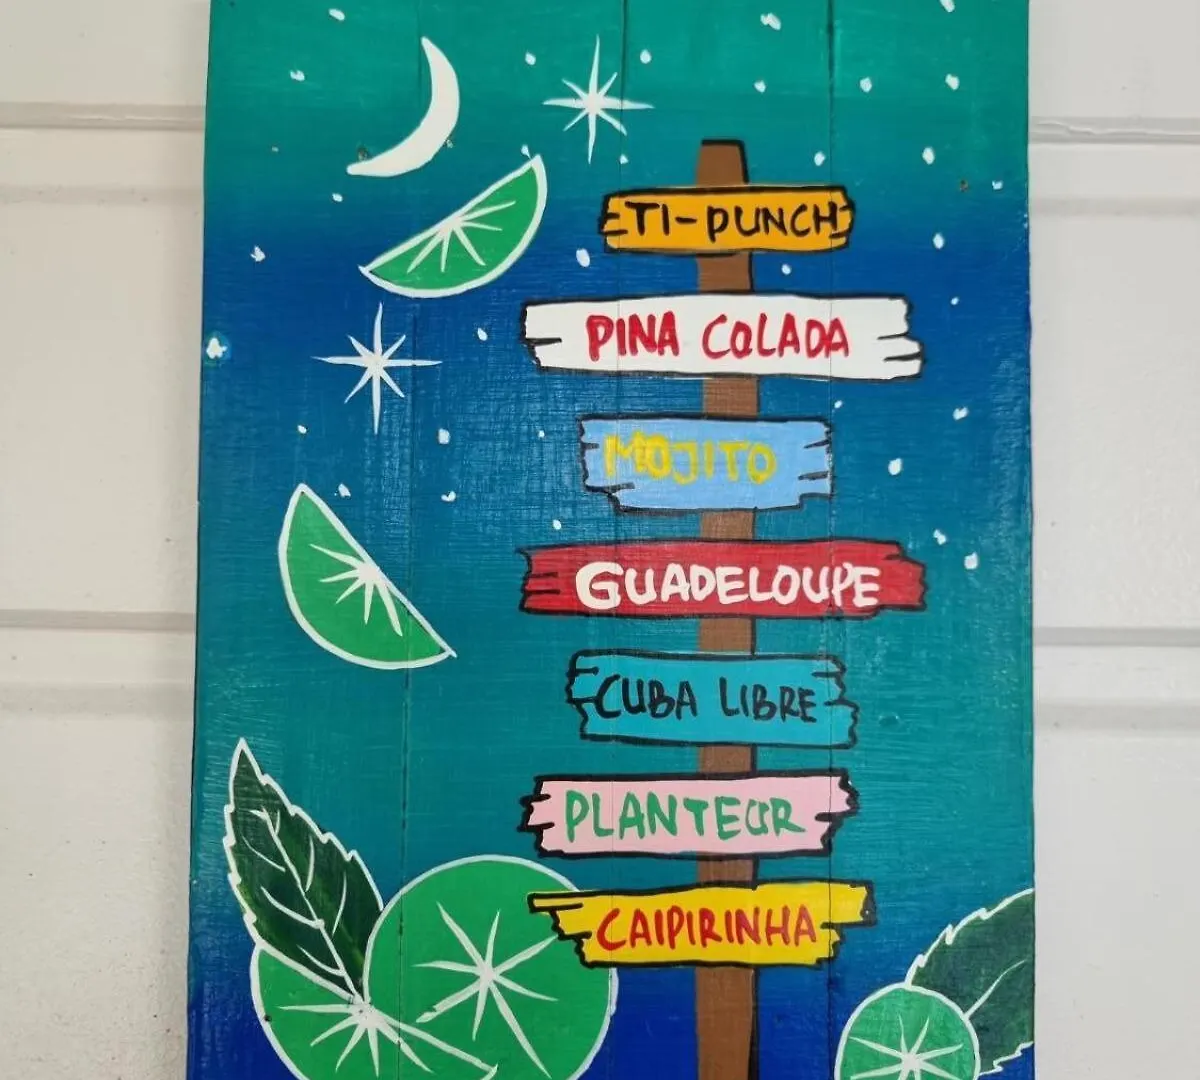 TI-PUNCH
PINA COLADA
MOJITO
GUADELOUPE
CUBA LIBRE
PLANTEUR
CAIPIRINHA